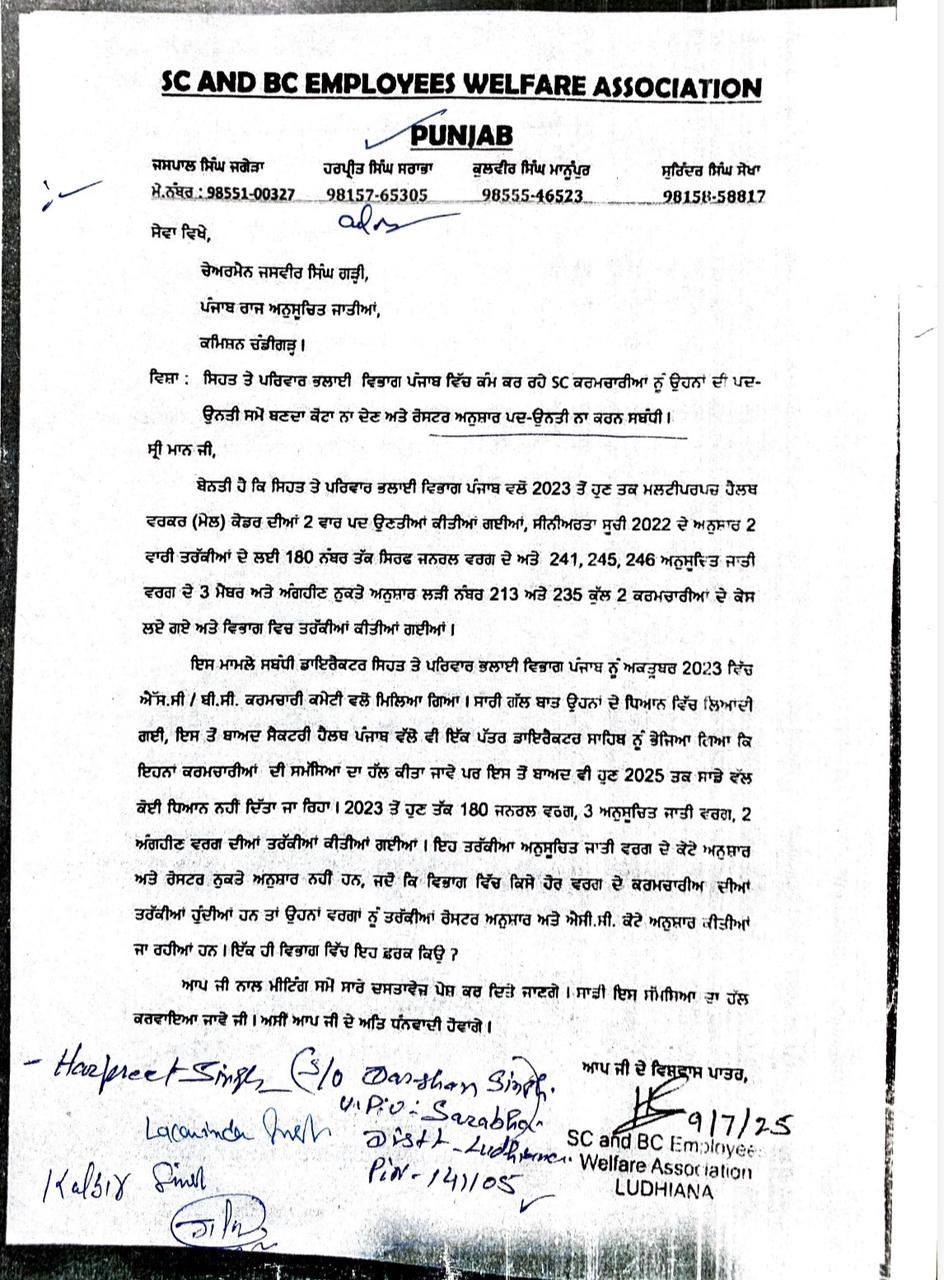 SC AND BC EMPLOYEES WELFARE ASSOCIATION
PUNJAB
ਜਸਪਾਲ ਸਿੰਘ ਜਗੇੜਾ ਹਰਪ੍ਰੀਤ ਸਿੰਘ ਸਰਾਭਾ ਕੁਲਵੀਰ ਸਿੰਘ ਮਾਨੂੰਪੁਰ ਸੁਰਿੰਦਰ ਸਿੰਘ ਸੇਖਾ
ਮੋ.ਨੰਬਰ : 98551-00327 98157-65305 98555-46523 98158-58817
ਸੇਵਾ ਵਿਖੇ,
ਚੇਅਰਮੈਨ ਜਸਵੀਰ ਸਿੰਘ ਗੜ੍ਹੀ,
ਪੰਜਾਬ ਰਾਜ ਅਨੁਸੂਚਿਤ ਜਾਤੀਆਂ,
ਕਮਿਸ਼ਨ ਚੰਡੀਗੜ੍ਹ।
ਵਿਸ਼ਾ : ਸਿਹਤ ਤੇ ਪਰਿਵਾਰ ਭਲਾਈ ਵਿਭਾਗ ਪੰਜਾਬ ਵਿੱਚ ਕੰਮ ਕਰ ਰਹੇ SC ਕਰਮਚਾਰੀਆਂ ਨੂੰ ਉਹਨਾਂ ਦੀ ਪਦ-
ਉਨਤੀ ਸਮੇਂ ਬਣਦਾ ਕੋਟਾ ਨਾ ਦੇਣ ਅਤੇ ਰੋਸਟਰ ਅਨੁਸ਼ਾਰ ਪਦ-ਉਨਤੀ ਨਾ ਕਰਨ ਸਬੰਧੀ।
ਸ੍ਰੀ ਮਾਨ ਜੀ,
ਬੇਨਤੀ ਹੈ ਕਿ ਸਿਹਤ ਤੇ ਪਰਿਵਾਰ ਭਲਾਈ ਵਿਭਾਗ ਪੰਜਾਬ ਵਲੋਂ 2023 ਤੋਂ ਹੁਣ ਤਕ ਮਲਟੀਪਰਪਜ਼ ਹੈਲਥ
ਵਰਕਰ (ਮੇਲ) ਕੇਡਰ ਦੀਆਂ 2 ਵਾਰ ਪਦ ਉਣਤੀਆਂ ਕੀਤੀਆਂ ਗਈਆਂ, ਸੀਨੀਅਰਤਾ ਸੂਚੀ 2022 ਦੇ ਅਨੁਸ਼ਾਰ 2
ਵਾਰੀ ਤਰੱਕੀਆਂ ਦੇ ਲਈ 180 ਨੰਬਰ ਤੱਕ ਸਿਰਫ ਜਨਰਲ ਵਰਗ ਦੇ ਅਤੇ 241, 245, 246 ਅਨੁਸੂਚਿਤ ਜਾਤੀ
ਵਰਗ ਦੇ 3 ਮੈਂਬਰ ਅਤੇ ਅੰਗਹੀਣ ਨੁਕਤੇ ਅਨੁਸ਼ਾਰ ਲੜੀ ਨੰਬਰ 213 ਅਤੇ 235 ਕੁੱਲ 2 ਕਰਮਚਾਰੀਆਂ ਦੇ ਕੇਸ
ਲਏ ਗਏ ਅਤੇ ਵਿਭਾਗ ਵਿਚ ਤਰੱਕੀਆਂ ਕੀਤੀਆਂ ਗਈਆਂ।
ਇਸ ਮਾਮਲੇ ਸਬੰਧੀ ਡਾਇਰੈਕਟਰ ਸਿਹਤ ਤੇ ਪਰਿਵਾਰ ਭਲਾਈ ਵਿਭਾਗ ਪੰਜਾਬ ਨੂੰ ਅਕਤੂਬਰ 2023 ਵਿੱਚ
ਐੱਸ.ਸੀ / ਬੀ.ਸੀ. ਕਰਮਚਾਰੀ ਕਮੇਟੀ ਵਲੋਂ ਮਿਲਿਆ ਗਿਆ। ਸਾਰੀ ਗੱਲ ਬਾਤ ਉਹਨਾਂ ਦੇ ਧਿਆਨ ਵਿੱਚ ਲਿਆਂਦੀ
ਗਈ, ਇਸ ਤੋਂ ਬਾਅਦ ਸੈਕਟਰੀ ਹੈਲਥ ਪੰਜਾਬ ਵੱਲੋਂ ਵੀ ਇੱਕ ਪੱਤਰ ਡਾਇਰੈਕਟਰ ਸਾਹਿਬ ਨੂੰ ਭੇਜਿਆ ਗਿਆ ਕਿ
ਇਹਨਾਂ ਕਰਮਚਾਰੀਆਂ ਦੀ ਸਮੱਸਿਆ ਦਾ ਹੱਲ ਕੀਤਾ ਜਾਵੇ ਪਰ ਇਸ ਤੋਂ ਬਾਅਦ ਵੀ ਹੁਣ 2025 ਤਕ ਸਾਡੇ ਵੱਲ
ਕੋਈ ਧਿਆਨ ਨਹੀਂ ਦਿੱਤਾ ਜਾ ਰਿਹਾ। 2023 ਤੋਂ ਹੁਣ ਤੱਕ 180 ਜਨਰਲ ਵਰਗ, 3 ਅਨੁਸੂਚਿਤ ਜਾਤੀ ਵਰਗ, 2
ਅੰਗਹੀਣ ਵਰਗ ਦੀਆਂ ਤਰੱਕੀਆਂ ਕੀਤੀਆਂ ਗਈਆਂ। ਇਹ ਤਰੱਕੀਆ ਅਨੁਸੂਚਿਤ ਜਾਤੀ ਵਰਗ ਦੇ ਕੋਟੇ ਅਨੁਸ਼ਾਰ
ਅਤੇ ਰੋਸਟਰ ਨੁਕਤੇ ਅਨੁਸ਼ਾਰ ਨਹੀਂ ਹਨ, ਜਦੋਂ ਕਿ ਵਿਭਾਗ ਵਿੱਚ ਕਿਸੇ ਹੋਰ ਵਰਗ ਦੇ ਕਰਮਚਾਰੀਅ ਦੀਆਂ
ਤਰੱਕੀਆਂ ਹੁੰਦੀਆਂ ਹਨ ਤਾਂ ਉਹਨਾਂ ਵਰਗਾਂ ਨੂੰ ਤਰੱਕੀਆਂ ਰੋਸਟਰ ਅਨੁਸ਼ਾਰ ਅਤੇ ਐਸੀ.ਸੀ. ਕੋਟੇ ਅਨੁਸ਼ਾਰ ਕੀਤੀਆਂ
ਜਾ ਰਹੀਆਂ ਹਨ। ਇੱਕ ਹੀ ਵਿਭਾਗ ਵਿੱਚ ਇਹ ਫਰਕ ਕਿਉਂ ?
ਆਪ ਜੀ ਨਾਲ ਮੀਟਿੰਗ ਸਮੇਂ ਸਾਰੇ ਦਸਤਾਵੇਜ਼ ਪੇਸ਼ ਕਰ ਦਿਤੇ ਜਾਣਗੇ। ਸਾਡੀ ਇਸ ਸੱਮਸਿਆ ਦਾ ਹੱਲ
ਕਰਵਾਇਆ ਜਾਵੇ ਜੀ। ਅਸੀਂ ਆਪ ਜੀ ਦੇ ਅਤਿ ਧੰਨਵਾਦੀ ਹੋਵਾਂਗੇ।
ਆਪ ਜੀ ਦੇ ਵਿਸ਼ਵਾਸ ਪਾਤਰ,
9/7/25
SC and BC Employee
Welfare Association
LUDHIANA
- Harpreet Singh S/o Darshan Singh.
V.P.O:- Sarabha
Distt - Ludhiana
Pin - 141105
Kalbir Singh